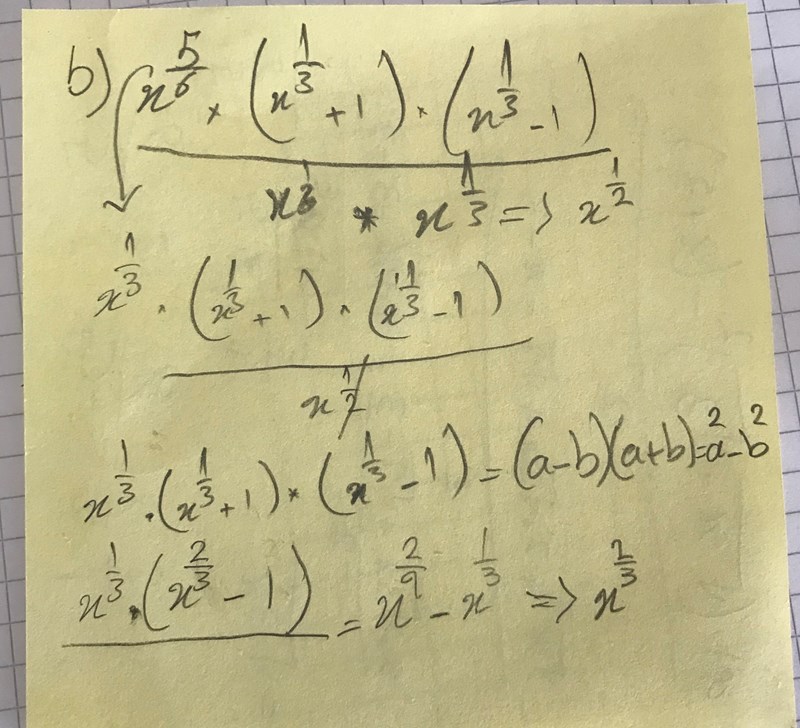 b) x^(5/6) × (x^(1/3) + 1) · (x^(1/3) - 1)
x^(1/6) * x^(1/3) => x^(1/2)
x^(1/3) · (x^(1/3) + 1) · (x^(1/3) - 1)
x^(1/2)
x^(1/3) · (x^(1/3) + 1) * (x^(1/3) - 1) = (a-b)(a+b) = a² - b²
x^(1/3) · (x^(2/3) - 1) = x^(2/9) - x^(1/3) => x^(2/3)